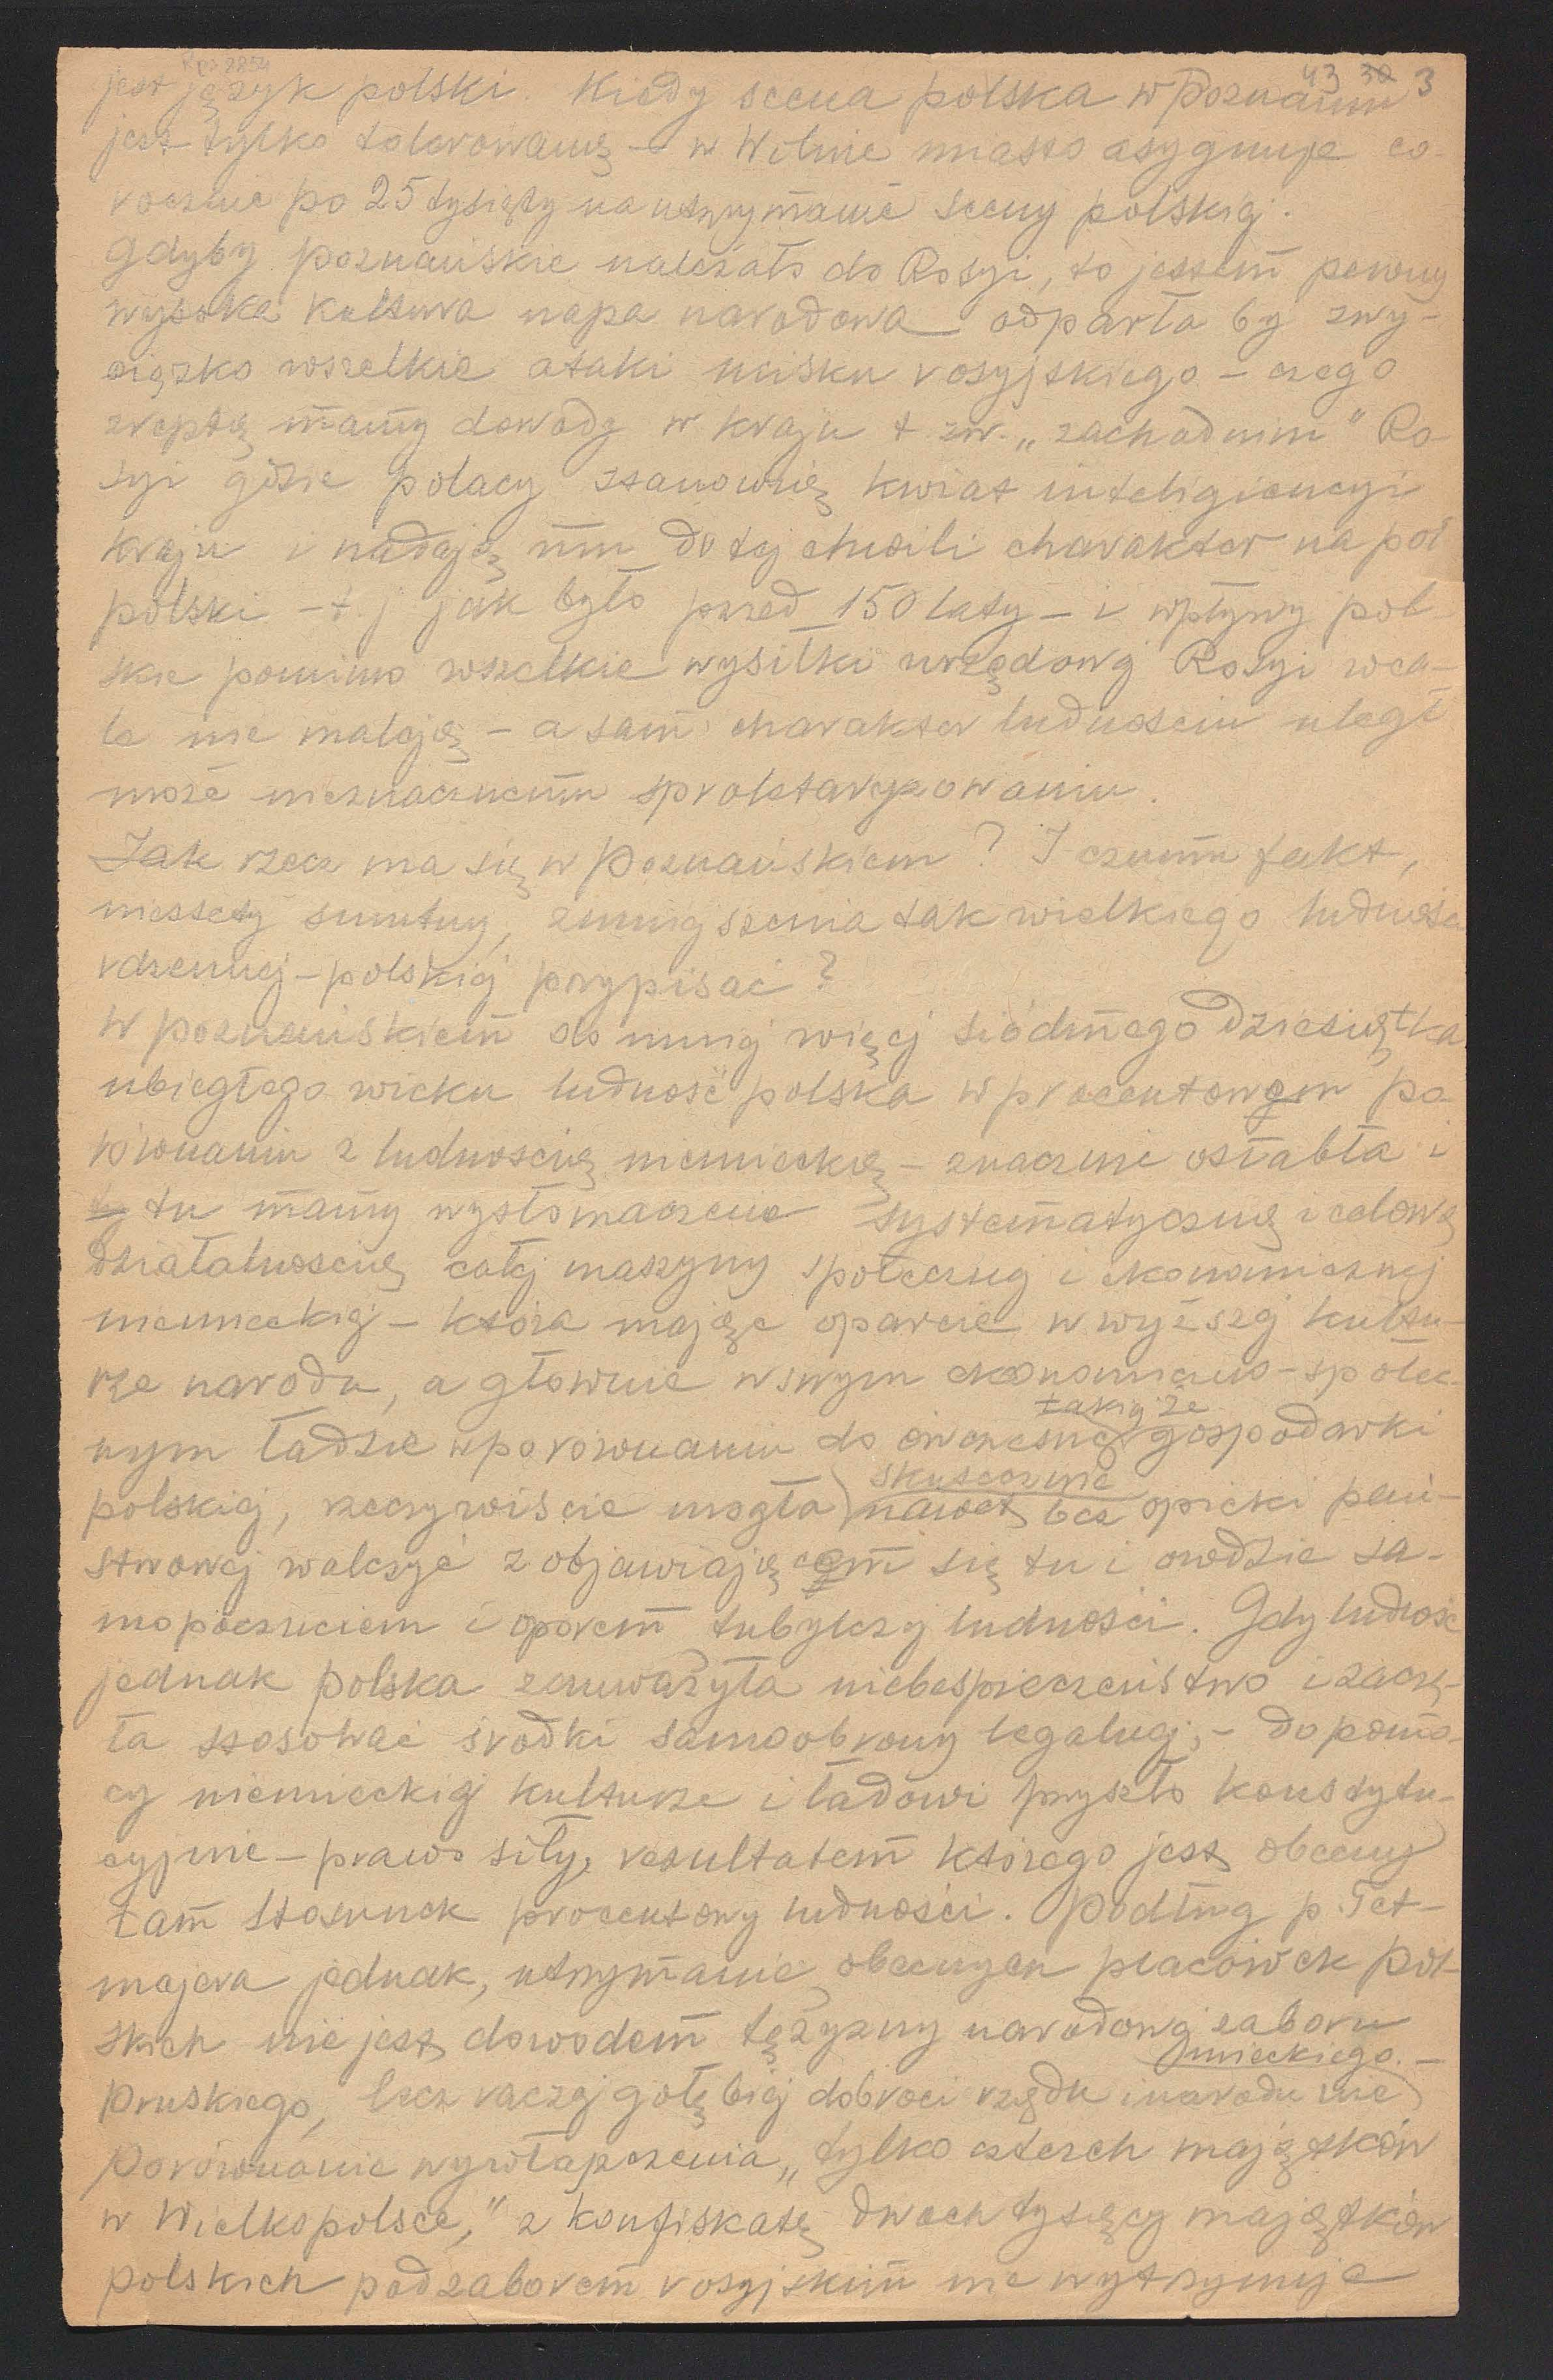 Rps 2854
43 30 3
jest język polski. Kiedy scena polska w Poznaniu
jest tylko tolerowaną – w Wilnie miasto asygnuje co-
rocznie po 25 tysięcy na utrzymanie sceny polskiej.
Gdyby poznańskie należało do Rosyi, to jestem pewny
wysoka kultura napa narodowa odparła by zwy-
cięzko wszelkie ataki ucisku rosyjskiego – czego
zreptą mamy dowody w kraju t. zw. „zachodnim" Ro-
syi gdzie polacy stanowią kwiat inteligiencyi
kraju i nadają mu do tej chwili charakter na pół
polski – t. j jak było przed 150 laty – i wpływy pol-
skie pomimo wszelkie wysiłki urzędowej Rosyi wca-
le nie maleją – a sam charakter ludnosciu uległ
może nieznacznemu sproletaryzowaniu.
Jak rzecz ma się w Poznańskiem? I czemu fakt,
niestety smutny, zmniejszenia tak wielkiego ludności
rdzennej – polskiej przypisać?
W poznańskiem do mniej więcej siódmego dziesiątka
ubiegłego wieku ludność polska w procentowem po-
równaniu z ludnoscią niemiecką – znacznie osłabła i
ty tu mamy wystomaczenie systematyczną i celową
działalnoscią całej maszyny społecznej i ekonomicznej
niemieckiej – która mając oparcie w wyższej kultu-
rze narodu, a głownie w swym ekonomiczno-społecz-
nym ładzie w porównaniu do ówczesnej takiej że gospodarki
polskiej, rzeczywiście mogła skutecznie nawet bez opieki pań-
stwowej walczyć z objawiającem się tu i owdzie sa-
mopoczuciem i oporem tubylczej ludności. Gdy ludność
jednak polska zauważyła niebespieczeństwo i zaczę-
ła stosować środki samoobrony legalnej, – do pomo-
cy niemieckiej kulturze i ładowi przyszło konstytu-
cyjnie – prawo siły, rezultatem którego jest obecny
tam stosunek procentowy ludności. Podług p. Tet-
majera jednak, utrzymanie obecnych placówek pol-
skich nie jest dowodem tężyzny narodowej zaboru
pruskiego, lecz raczej gołębiej dobroci rządu i narodu nie
mieckiego. –
Porównanie wywłapszczenia „tylko czterech majątków
w Wielkopolsce," z konfiskatą dwoch tysięcy majątków
polskich pod zaborem rosyjskim nie wytrzymuje